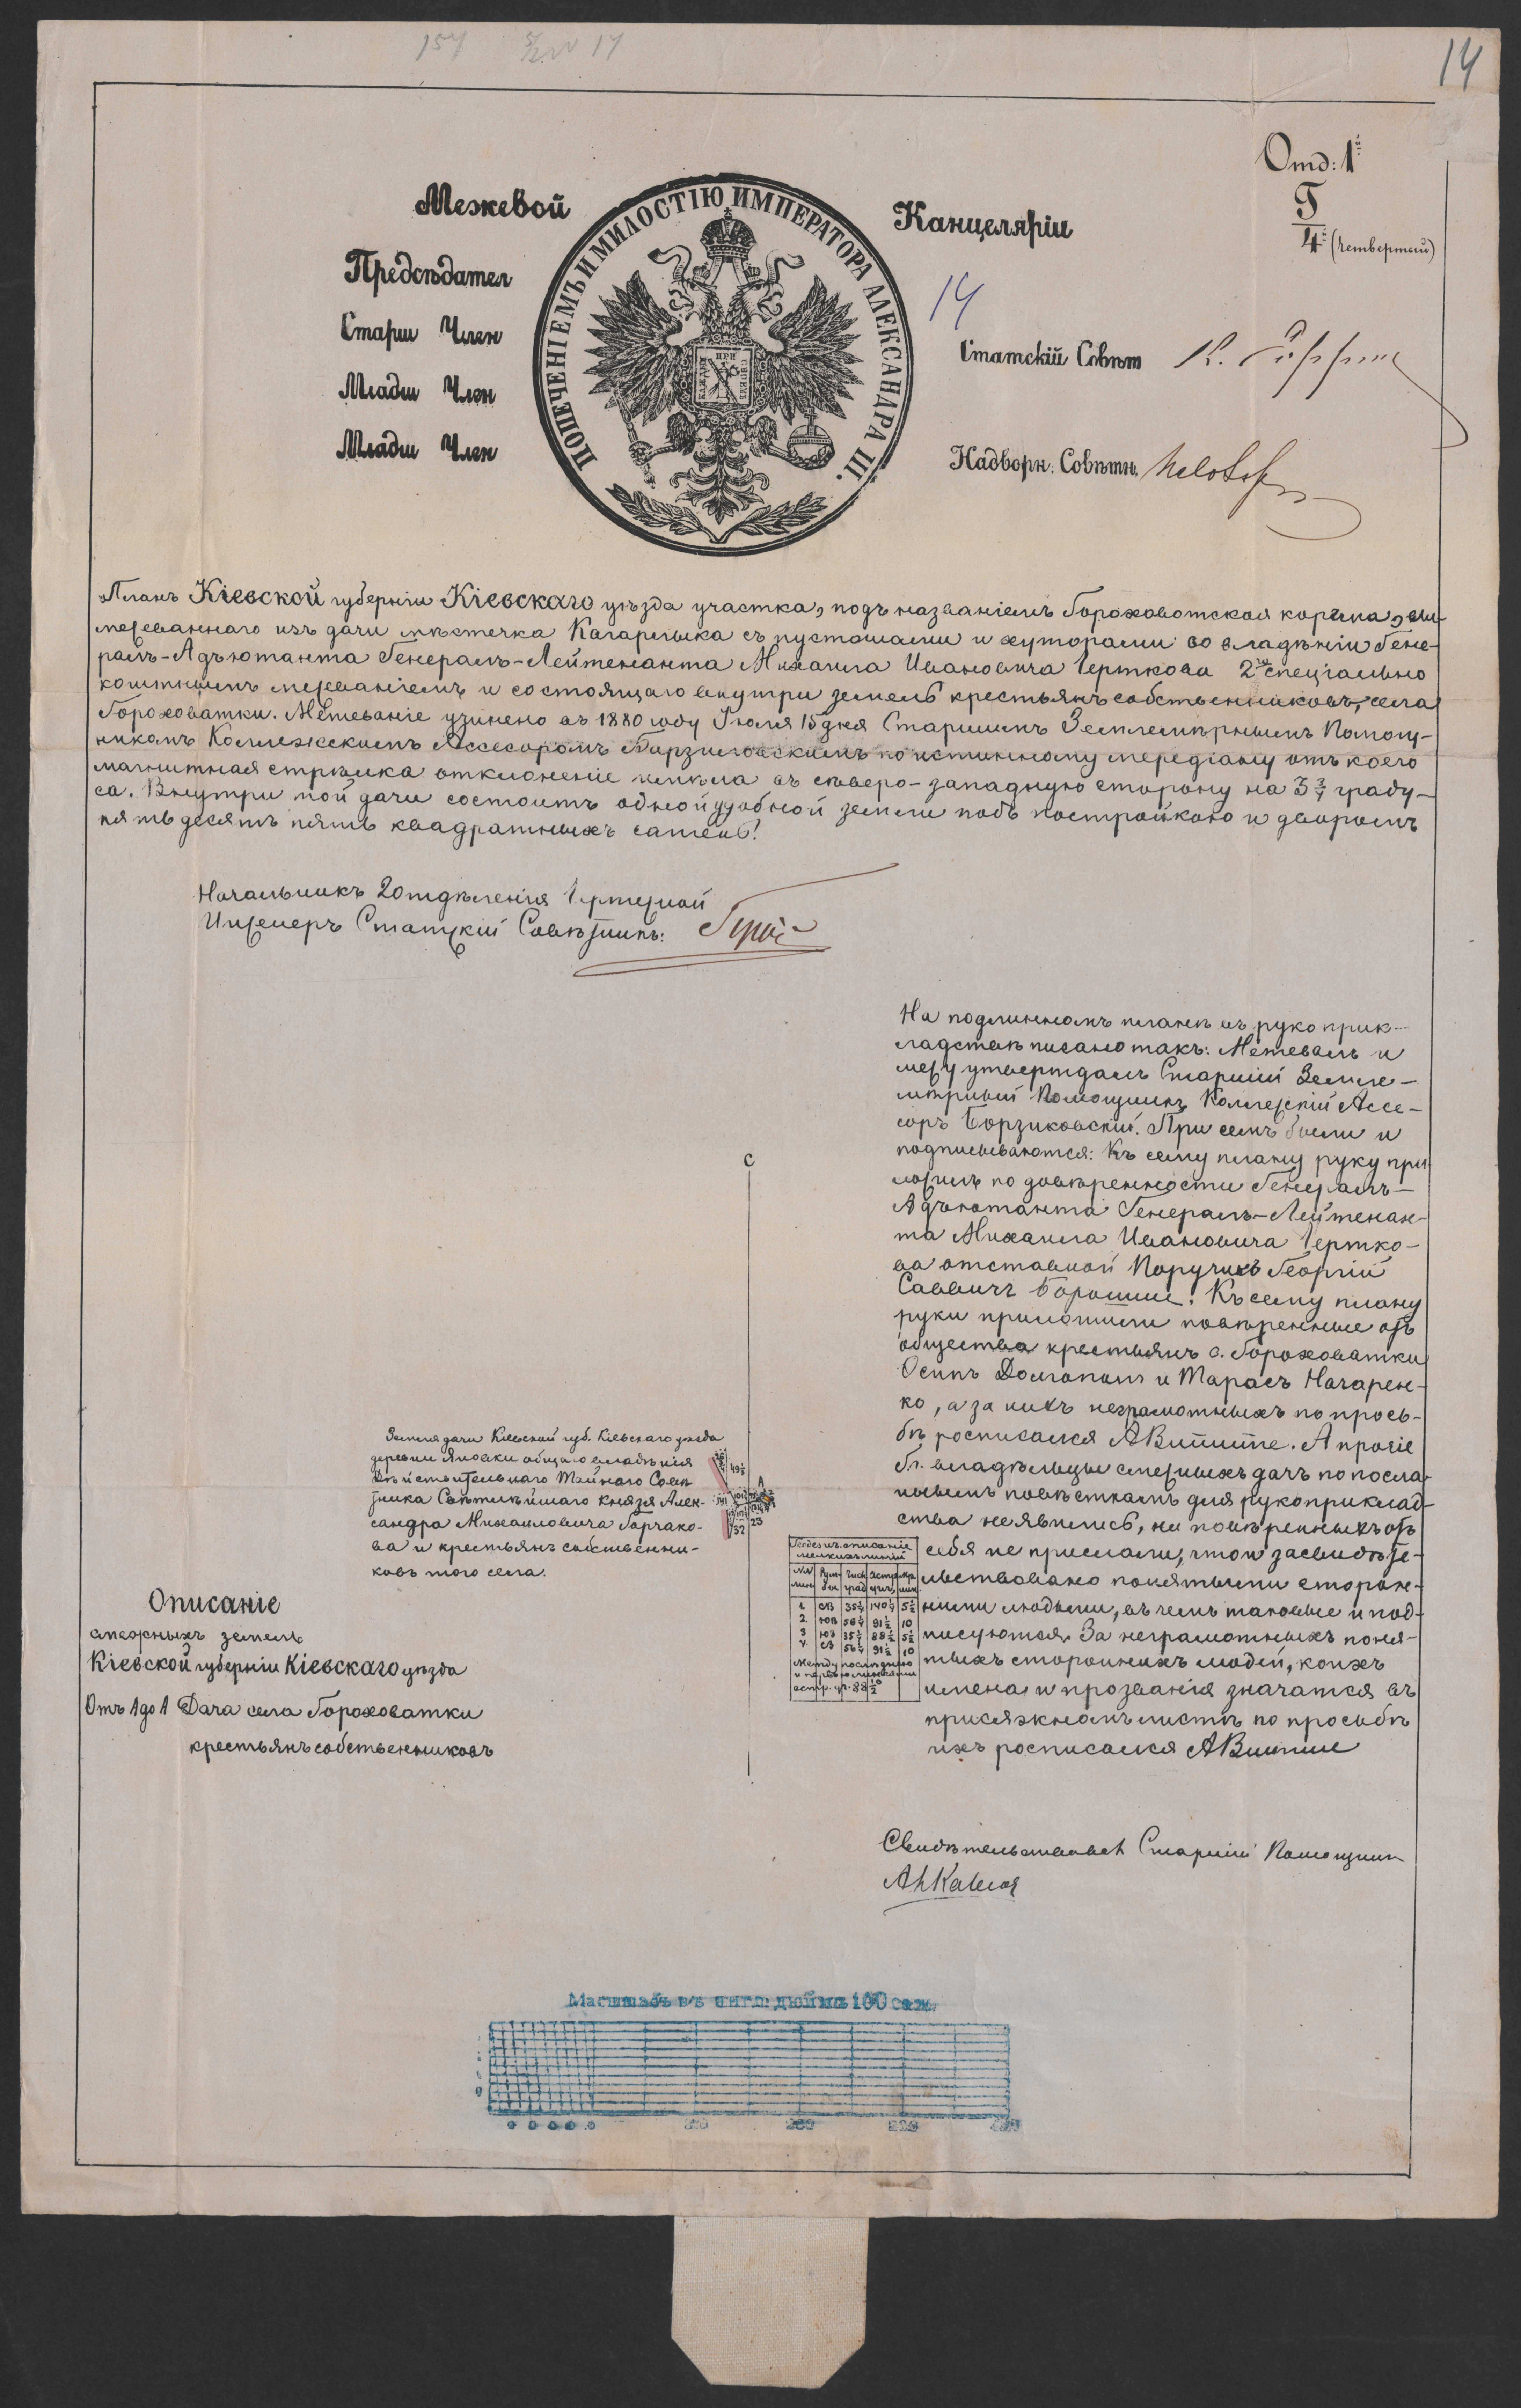 157
14
Отд: 1й
Г
4й (четвертый)
Межевой
Канцеляріи
ПОПЕЧЕНІЕМЪ И МИЛОСТІЮ ИМПЕРАТОРА АЛЕКСАНДРА III.
Предсѣдател
Старш Член
Младш Член
Младш Член
14
Статскій Совѣт
Надворн. Совѣтн.
Планъ Кіевской губерніи Кіевскаго уѣзда участка, подъ названіемъ Гороховотская корчма, вы-
межеваннаго изъ дачи мѣстечка Кагарлыка съ пустошами и хуторами во владѣніи Гене-
ралъ-Адъютанта Генералъ-Лейтенанта Михаила Ивановича Черткова 2мъ спеціально
коштнымъ межеваніемъ и состоящаго внутри земель крестьянъ собственниковъ, села
Гороховатки. Межеваніе учинено въ 1880 году Іюля 15 дня Старшимъ Землемѣрнымъ Помощ-
никомъ Коллежскимъ Ассесоромъ Борзиковскимъ по истинному меридіану отъ коего
магнитная стрѣлка отклоненіе имѣла въ сѣверо-западную сторону на 3 3/4 граду-
са. Внутри той дачи состоитъ одной удобной земли подъ постройкою и дворомъ
пятьдесятъ пять квадратныхъ сажень!
Начальникъ 2 отдѣленія Чертежной
Инженеръ Статскій Совѣтникъ:
На подлинномъ планѣ въ рукоприк-
ладствѣ писано такъ: Межевалъ и
межу утверждалъ Старшій Земле-
мѣрный Помощникъ Коллежскій Ассе-
соръ Борзиковскій. При семъ были и
подписываются: Къ сему плану руку при-
ложилъ по довѣренности Генералъ-
Адъютанта Генералъ-Лейтенан-
та Михаила Ивановича Чертко-
ва отставной Поручикъ Георгій
Саввичъ. Къ сему плану
руки приложили повѣренные отъ
общества крестьянъ с. Гороховатки
Осипъ Долгополъ и Тарасъ Назарен-
ко, а за нихъ неграмотныхъ по прось-
бѣ росписался. А прочіе
г.г. владѣльцы смежныхъ дачъ по посла-
нымъ повѣсткамъ для рукоприклад-
ства не явились, ни повѣренныхъ отъ
себя не прислали, что и засвидѣте-
льствовано понятыми сторон-
ними людьми, въ чемъ таковые и под-
писуются. За неграмотныхъ поня-
тыхъ стороннихъ людей, коихъ
имена и прозванія значатся въ
присяжномъ листѣ по просьбѣ
ихъ росписался
С
Земля дачи Кіевской губ. Кіевскаго уѣзда
деревни Яновки общаго владѣнія
Дѣйствительнаго Тайнаго Совѣ-
тника Свѣтлѣйшаго Князя Алек-
сандра Михаиловича Горчако-
ва и крестьянъ собственни-
ковъ того села.
А
23
32
Геодезич. описаніе
мелкихъ линій
1. СВ 35 1/4 140 1/4 5 1/2
2. ЮВ 56 1/4 91 1/2 10
3 ЮЗ 35 1/4 88 1/2 5 1/2
4. СЗ 56 1/4 91 1/2 10
Между послѣднею
и первою линіями
астр. уг. 88 1/2
Описаніе
смежныхъ земель
Кіевской губерніи Кіевскаго уѣзда
Отъ А до А Дача села Гороховатки
крестьянъ собственниковъ
Свидѣтельствовалъ Старшій Помощник
Масштабъ въ англ: дюймѣ 100 саж.